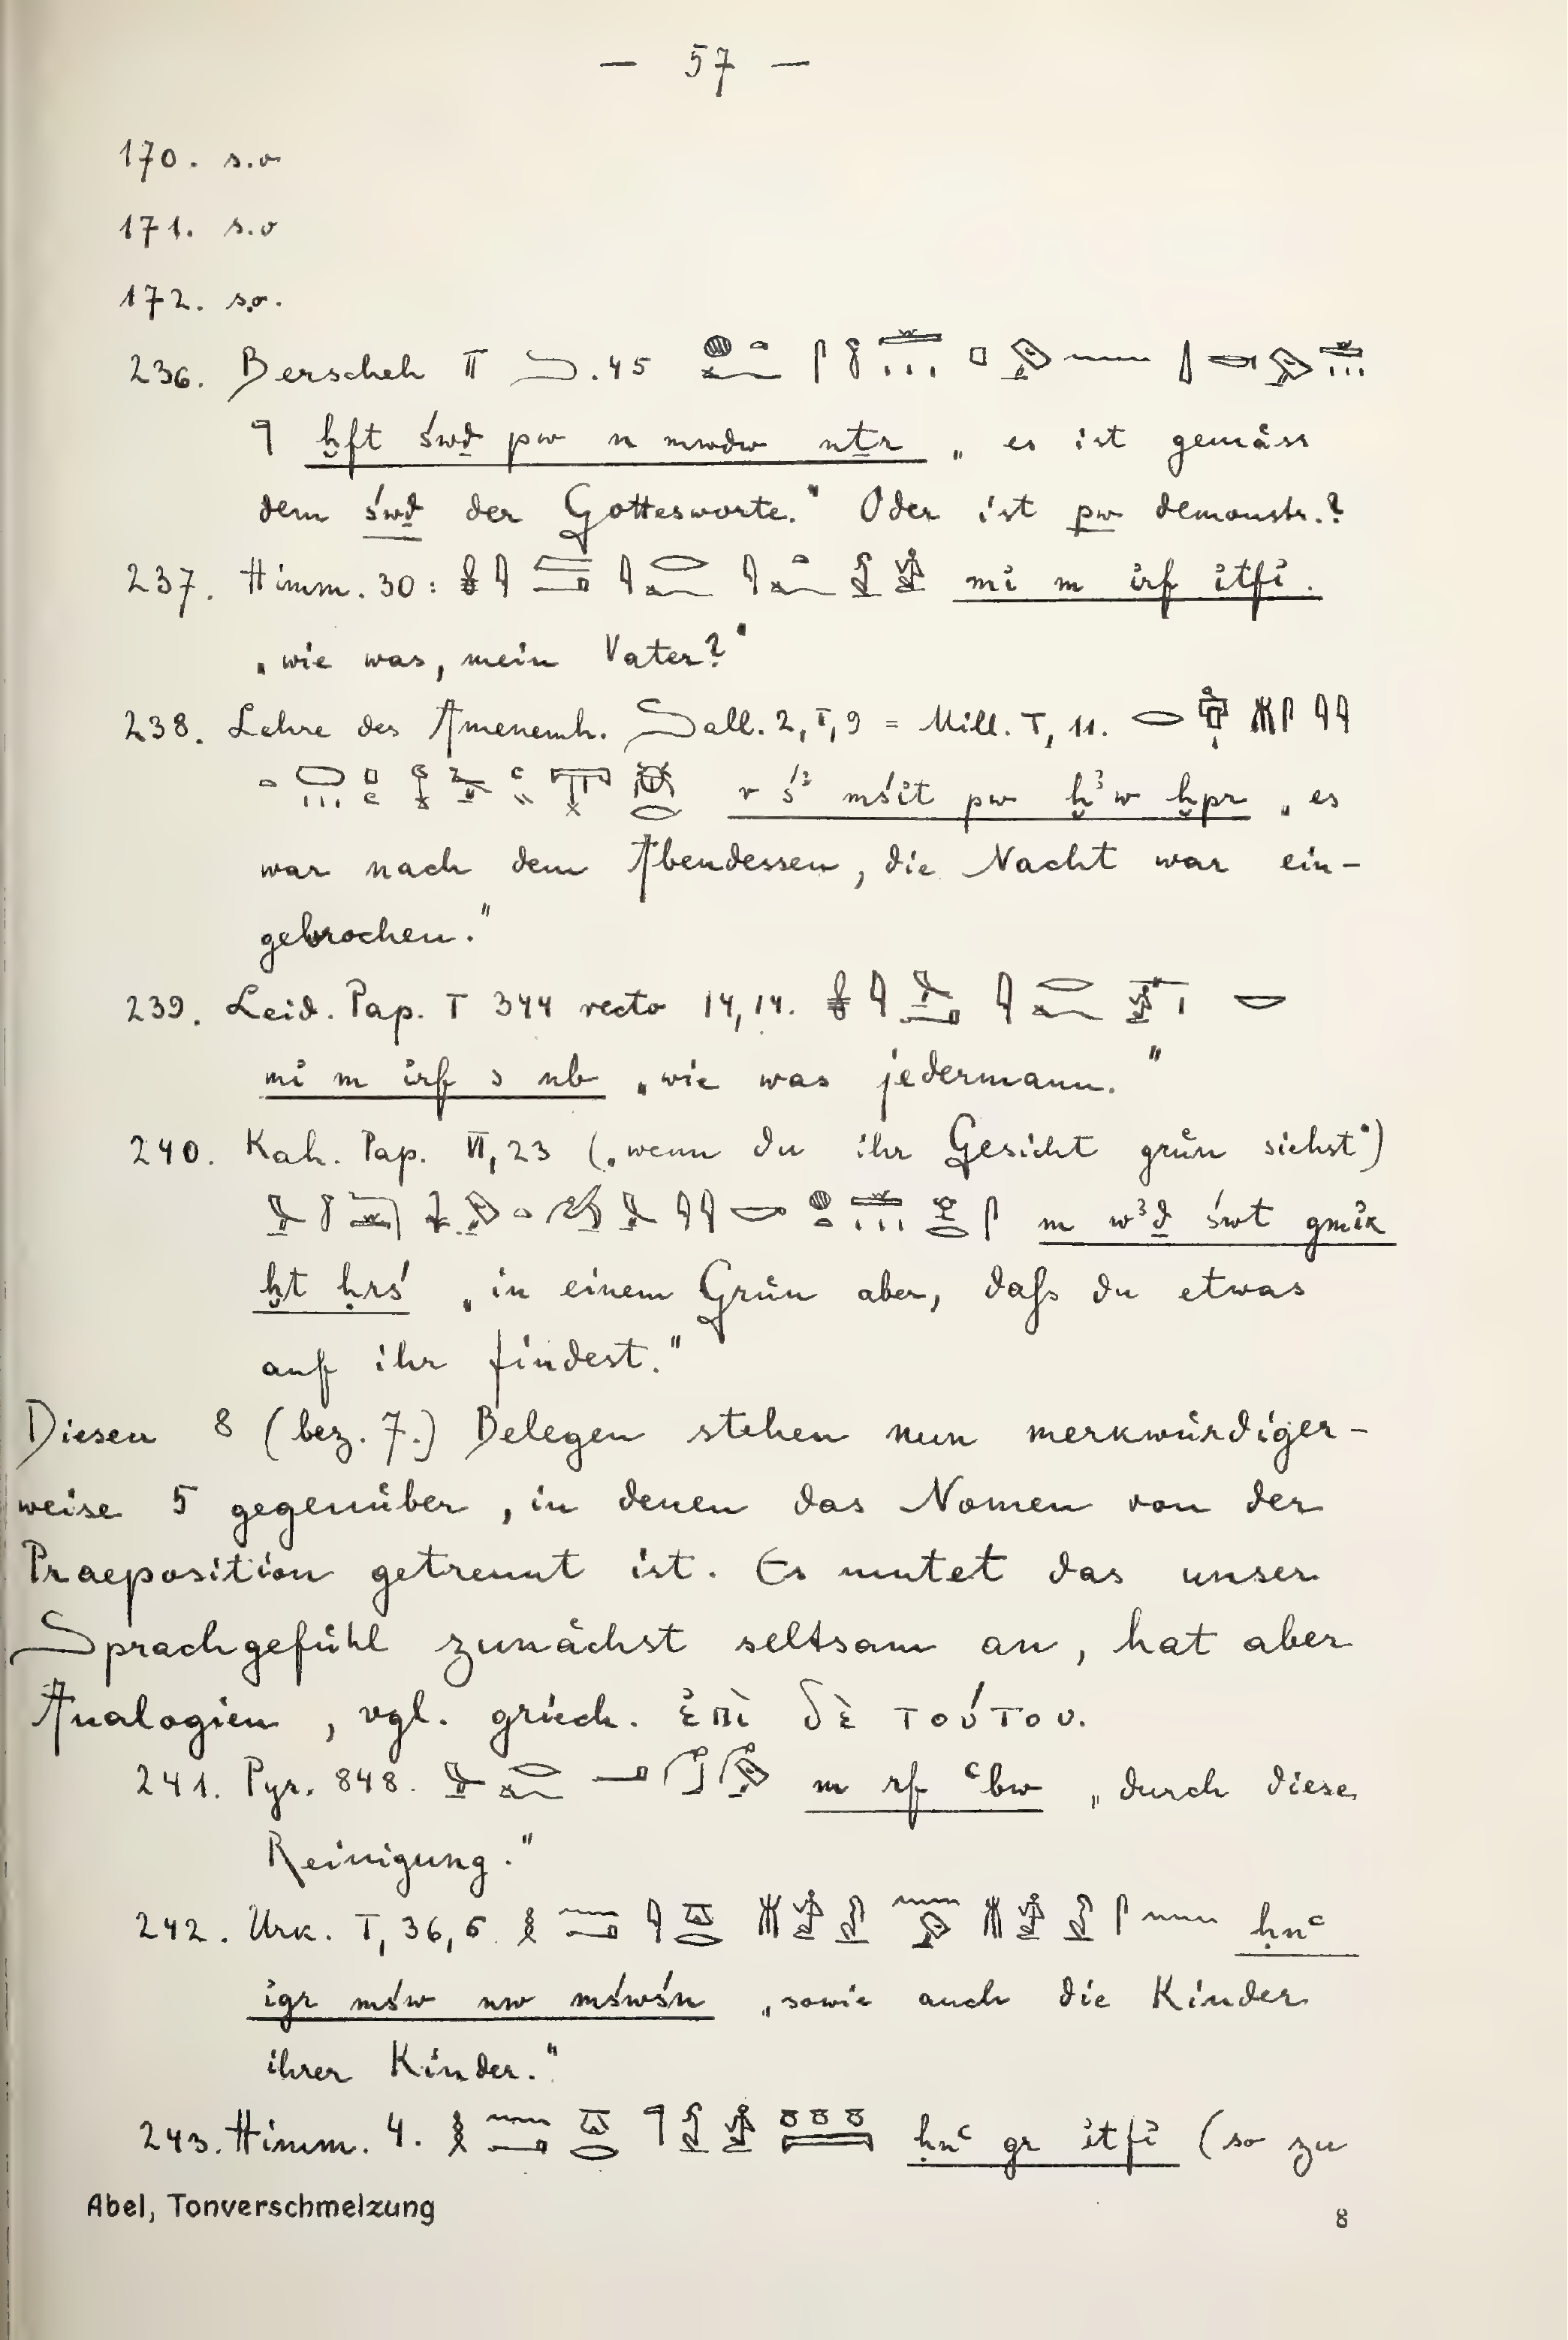 — 57 —
170. s.o
171. s.o
172. s.o.
236. Berscheh II S. 45
ḫft śwḏ pw n mwdw nṯr „es ist gemäss
dem śwḏ der Gottesworte.“ Oder ist pw demonstr.?
237. Himm. 30: mi m irf itfi.
„wie was, mein Vater?“
238. Lehre des Amenemh. Sall. 2, I, 9 = Mill. I, 11.
r ś³ mśit pw ḫ³w ḫpr „es
war nach dem Abendessen, die Nacht war ein-
gebrochen.“
239. Leid. Pap. I 344 recto 14,14.
mi m irf s nb „wie was jedermann.“
240. Kah. Pap. VI, 23 („wenn du ihr Gesicht grün siehst“)
m w³ḏ śwt gmik
ḫt ḥrś „in einem Grün aber, daſs du etwas
auf ihr findest.“
Diesen 8 (bez. 7.) Belegen stehen nun merkwürdiger-
weise 5 gegenüber, in denen das Nomen von der
Praeposition getrennt ist. Es mutet das unser
Sprachgefühl zunächst seltsam an, hat aber
Analogien, vgl. griech. ἐπὶ δὲ τούτου.
241. Pyr. 848. m rf ꜥbw „durch diese
Reinigung.“
242. Urk. I, 36, 6 ḥnꜥ
igr mśw nw mśwśn „sowie auch die Kinder
ihrer Kinder.“
243. Himm. 4. ḥnꜥ gr itfi (so zu
Abel, Tonverschmelzung 8